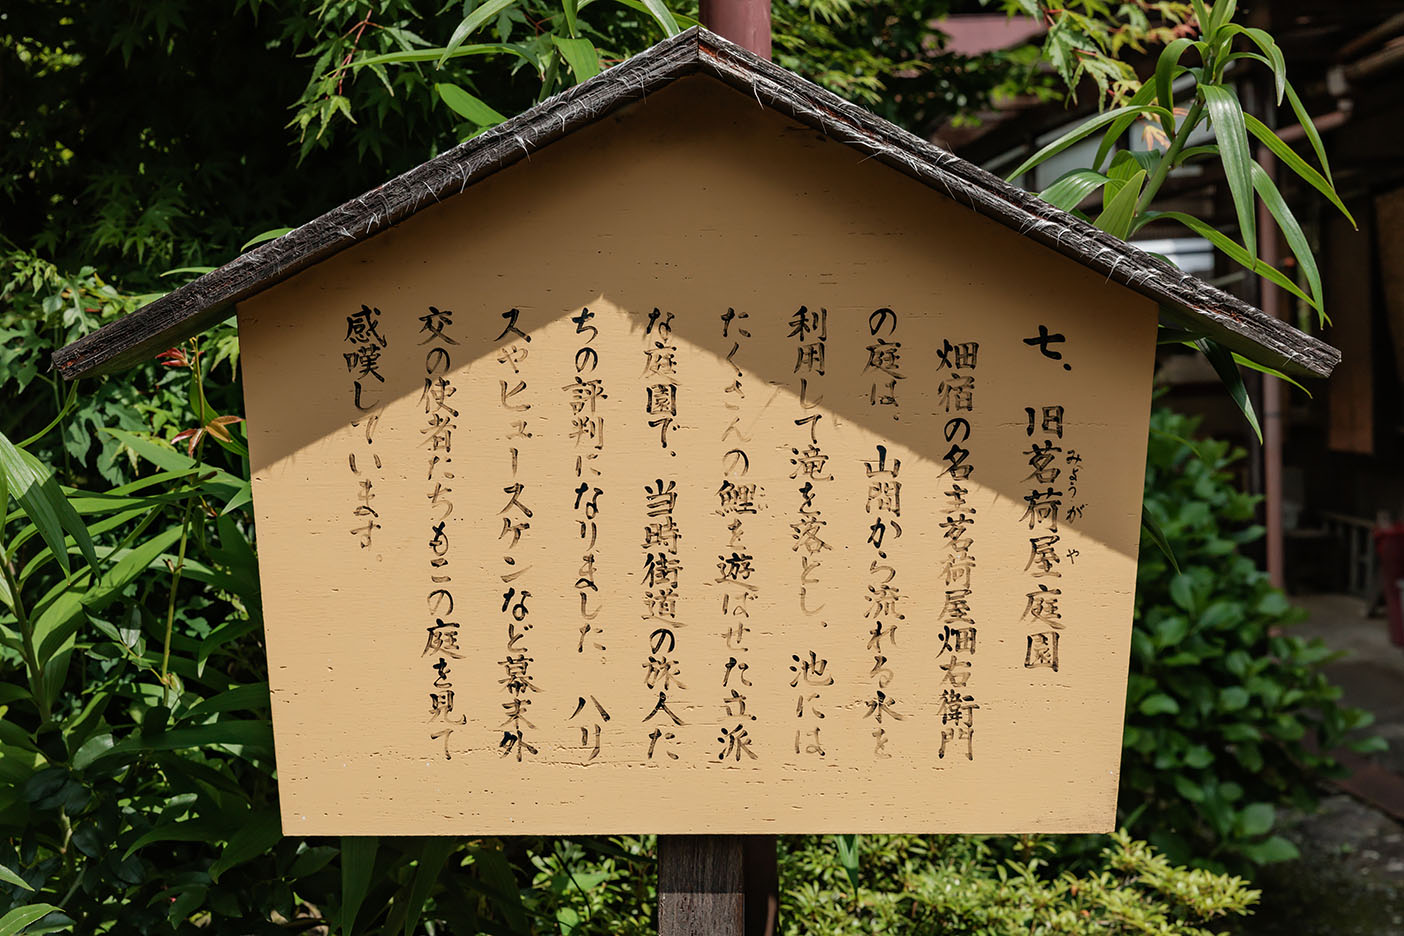 七、旧茗荷屋庭園
みょうがや
畑宿の名主茗荷屋畑右衛門
の庭は、山間から流れる水を
利用して滝を落とし、池には
たくさんの鯉を遊ばせた立派
な庭園で、当時街道の旅人た
ちの評判になりました。ハリ
スやヒュースケンなど幕末外
交の使者たちもこの庭を見て
感嘆しています。